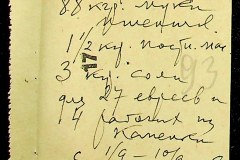 88 кгр. муки
пшенич.
1 1/2 кг. пост. мас
3 кгр. соли
93
для 27 евреев и
4 рабочих из
Каменки
с 1/9 – 10/9
17